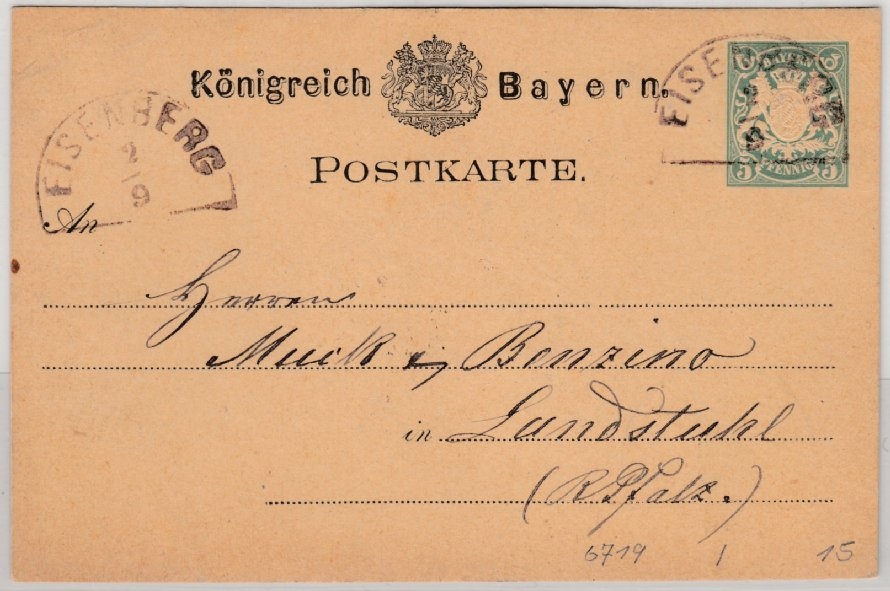 Königreich Bayern.
POSTKARTE.
EISENBERG
2
9
EISENBERG
2
9
BAYERN
5 5
PFENNIG
5 5
An
Herren
Muck & Benzino
in Landstuhl
(RPfalz.)
6719 1 15